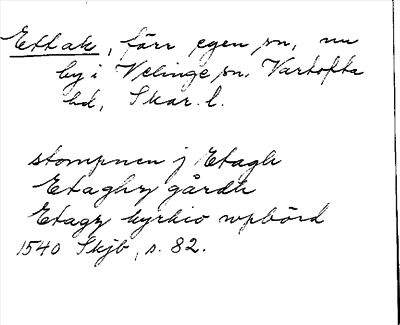 Ettak, förr egen sn, nu
by i Velinge sn, Vartofta
hd, Skar. l.
stompnen j Etagh
Etaghz gårdh
Etagz kyrkio wpbörd
1540 Skjb, s. 82.